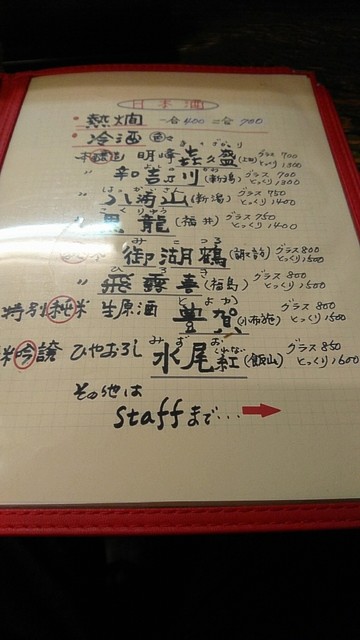 日本酒
・熱燗 一合 400 二合 700
・冷酒
本醸造 明峰 喜久盛 (上田) グラス 700 とっくり 1300
〃 和吉川 (新潟) グラス 700 とっくり 1300
〃 (新潟) グラス 750 とっくり 1400
〃 黒龍 (福井) グラス 750 とっくり 1400
みこつる
御湖鶴 (諏訪) グラス 800 とっくり 1500
ひろき
〃 飛露喜 (福島) グラス 800 とっくり 1500
とよか
特別純米 生原酒 豊賀 (小布施) グラス 800 とっくり 1500
みずお くれない
米吟醸 ひやおろし 水尾 紅 (飯山) グラス 850 とっくり 1600
その他は
staffまで・・・